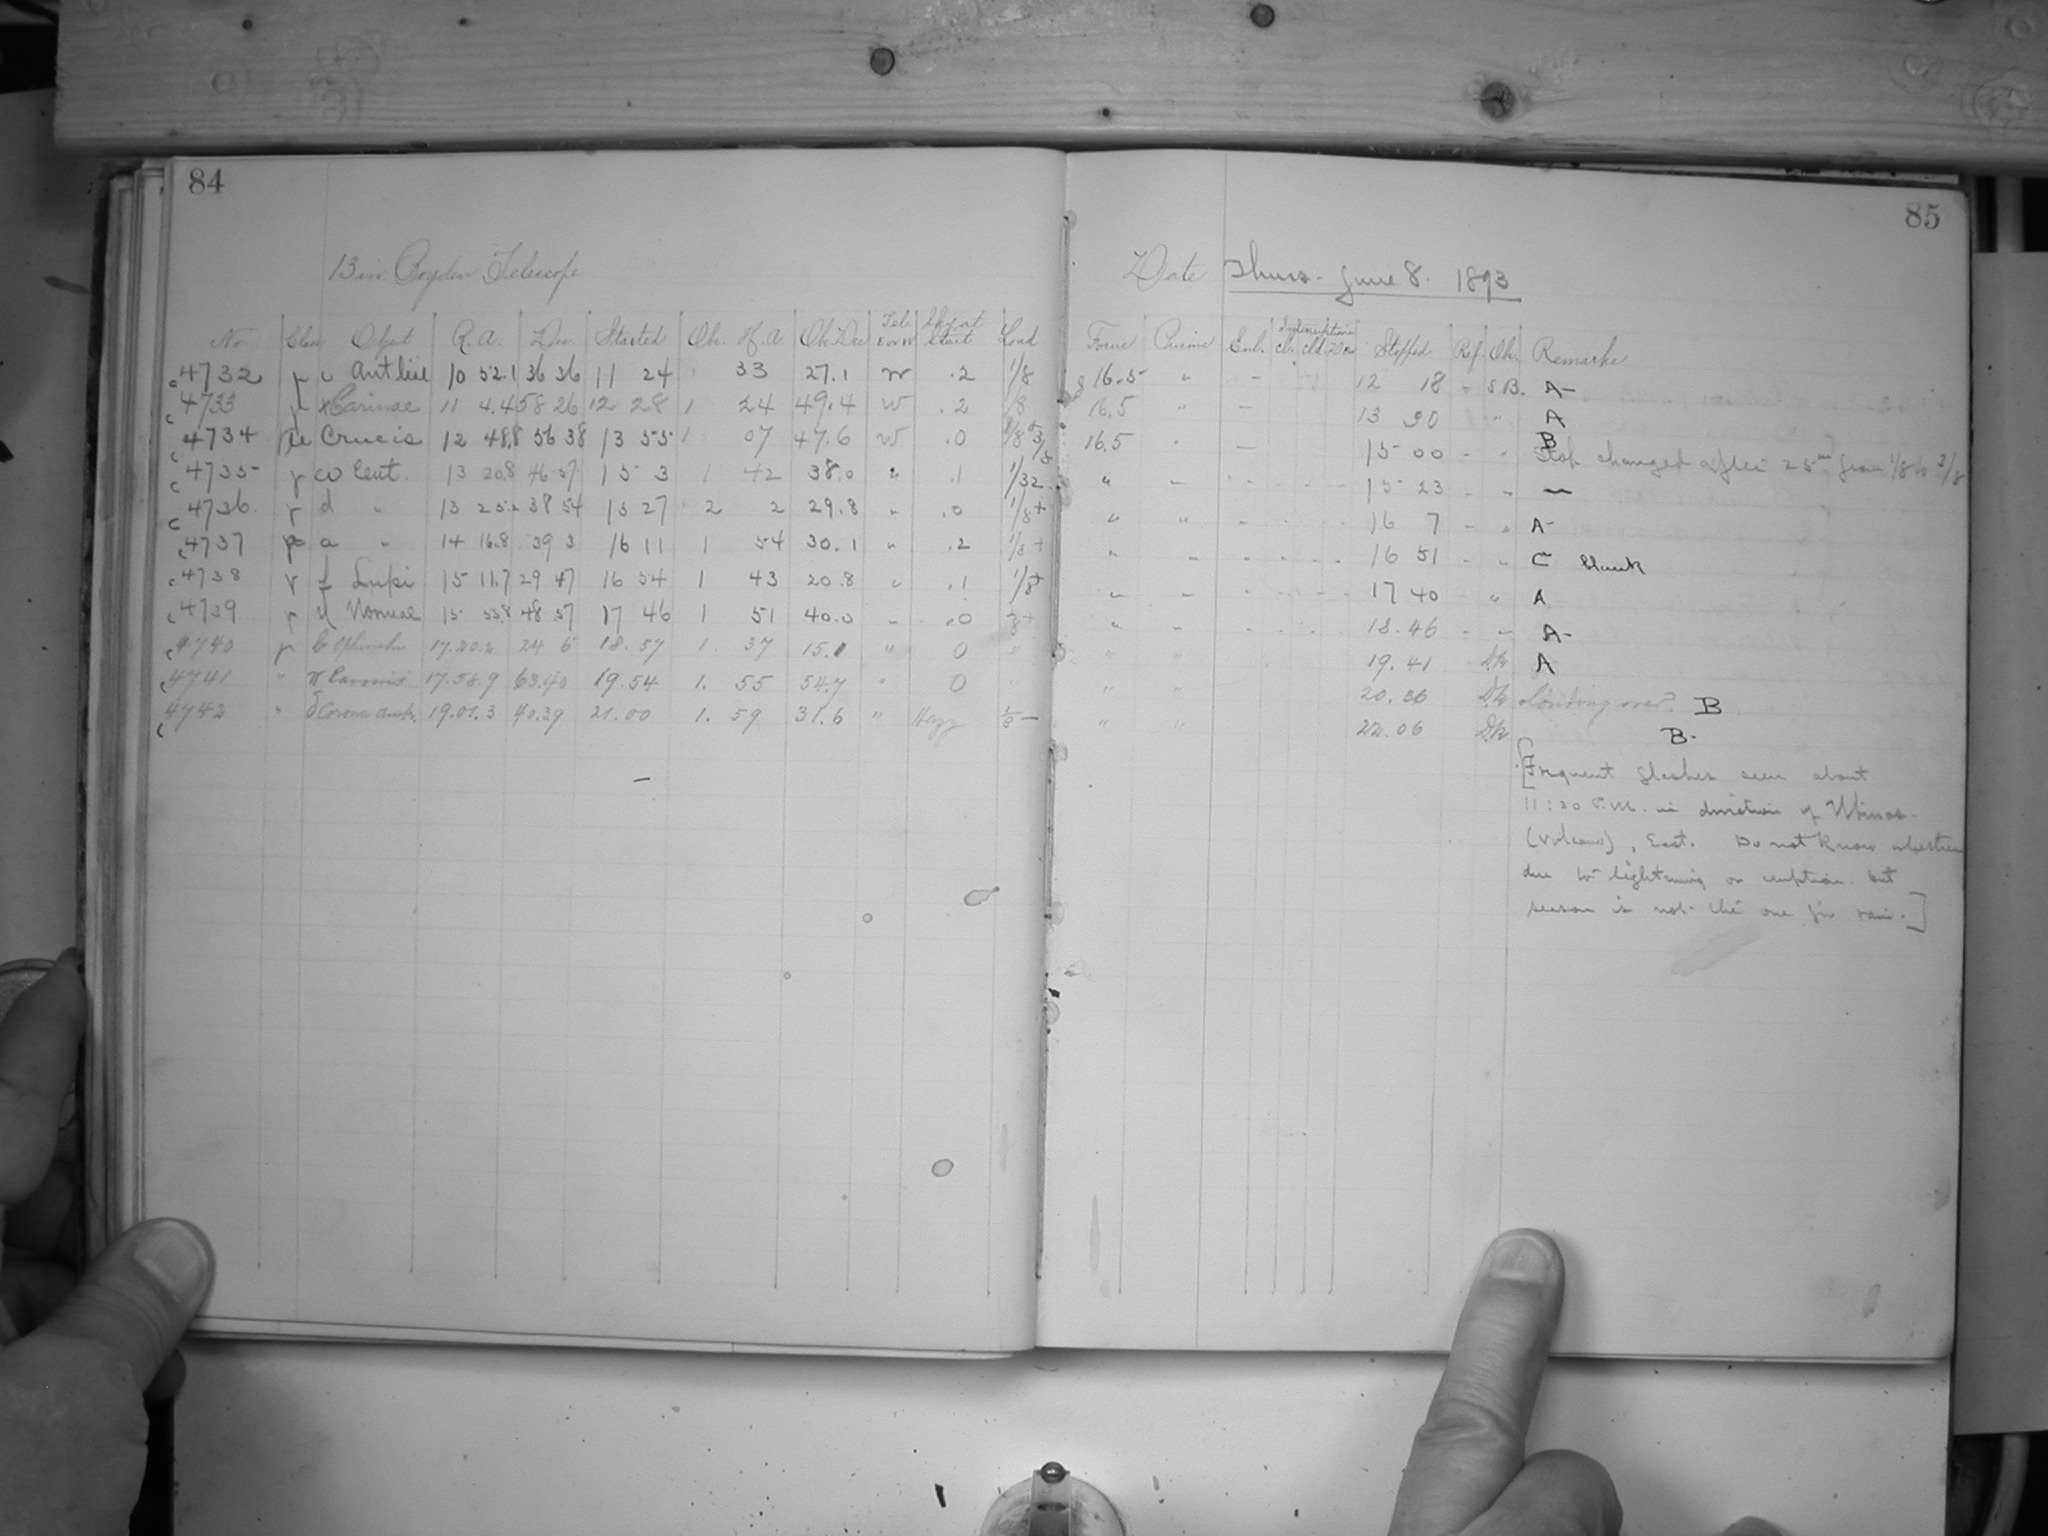 84
13 in. Boyden Telescope
No. Class Object R.A. Dec. Started Ob. H.A. Ob. Dec Tele E or W Sky at Start Load
4732 ι Antliae 10 52.1 36 36 11 24 33 27.1 W .2 1/8
4733 x Carinae 11 4.4 58 26 12 28 1 24 49.4 W .2 1/8
4734 Crucis 12 48.8 56 38 13 55 1 07 47.6 W .0 1/8 + 3/8
4735 ω Cent. 13 20.8 46 57 15 3 1 42 38.0 " .1 1/32
4736 d " 13 25.2 38 54 15 27 2 2 29.8 " .0 1/8+
4737 a " 14 16.8 39 3 16 11 1 54 30.1 " .2 1/8+
4738 f Lupi 15 11.7 29 47 16 54 1 43 20.8 " .1 1/8+
4739 η Normae 15 55.8 48 57 17 46 1 51 40.0 " .0 1/8+
4740 Ophiuchi 17.20.2 24 6 18.57 1. 37 15.1 " 0 "
4741 " π Pavonis 17.58.9 63.40 19.54 1. 55 54.7 " 0 "
4742 " δ Corona Austr. 19.01.3 40.39 21.00 1. 59 31.6 " Hazy 1/8 –
85
Date Thurs. June 8. 1893
Focus Prisms Enl. Interruptions Cl. Cld. Stopped Ref. Ob. Remarks
16.5 " – 12 18 – S.B. A-
16.5 " – 13 30 " A
16.5 " – 15 00 – " B Stop changed after 25m from 1/8 to 3/8
" – 15 23 – " –
" " 16 7 – " A-
" " 16 51 – " C blank
" " 17 40 – " A
" " 18.46 – " A-
" " 19.41 A
" " 20.36 B
" " 22.06 B-
[Frequent flashes seen about
11:30 P.M. in direction of
(volcano), East. Do not know whether
due to lightning or eruption. but
season is not the one for rain.]